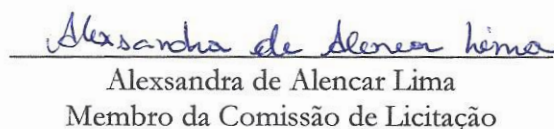 Alexsandra de Alencar Lima
Alexsandra de Alencar Lima
Membro da Comissão de Licitação